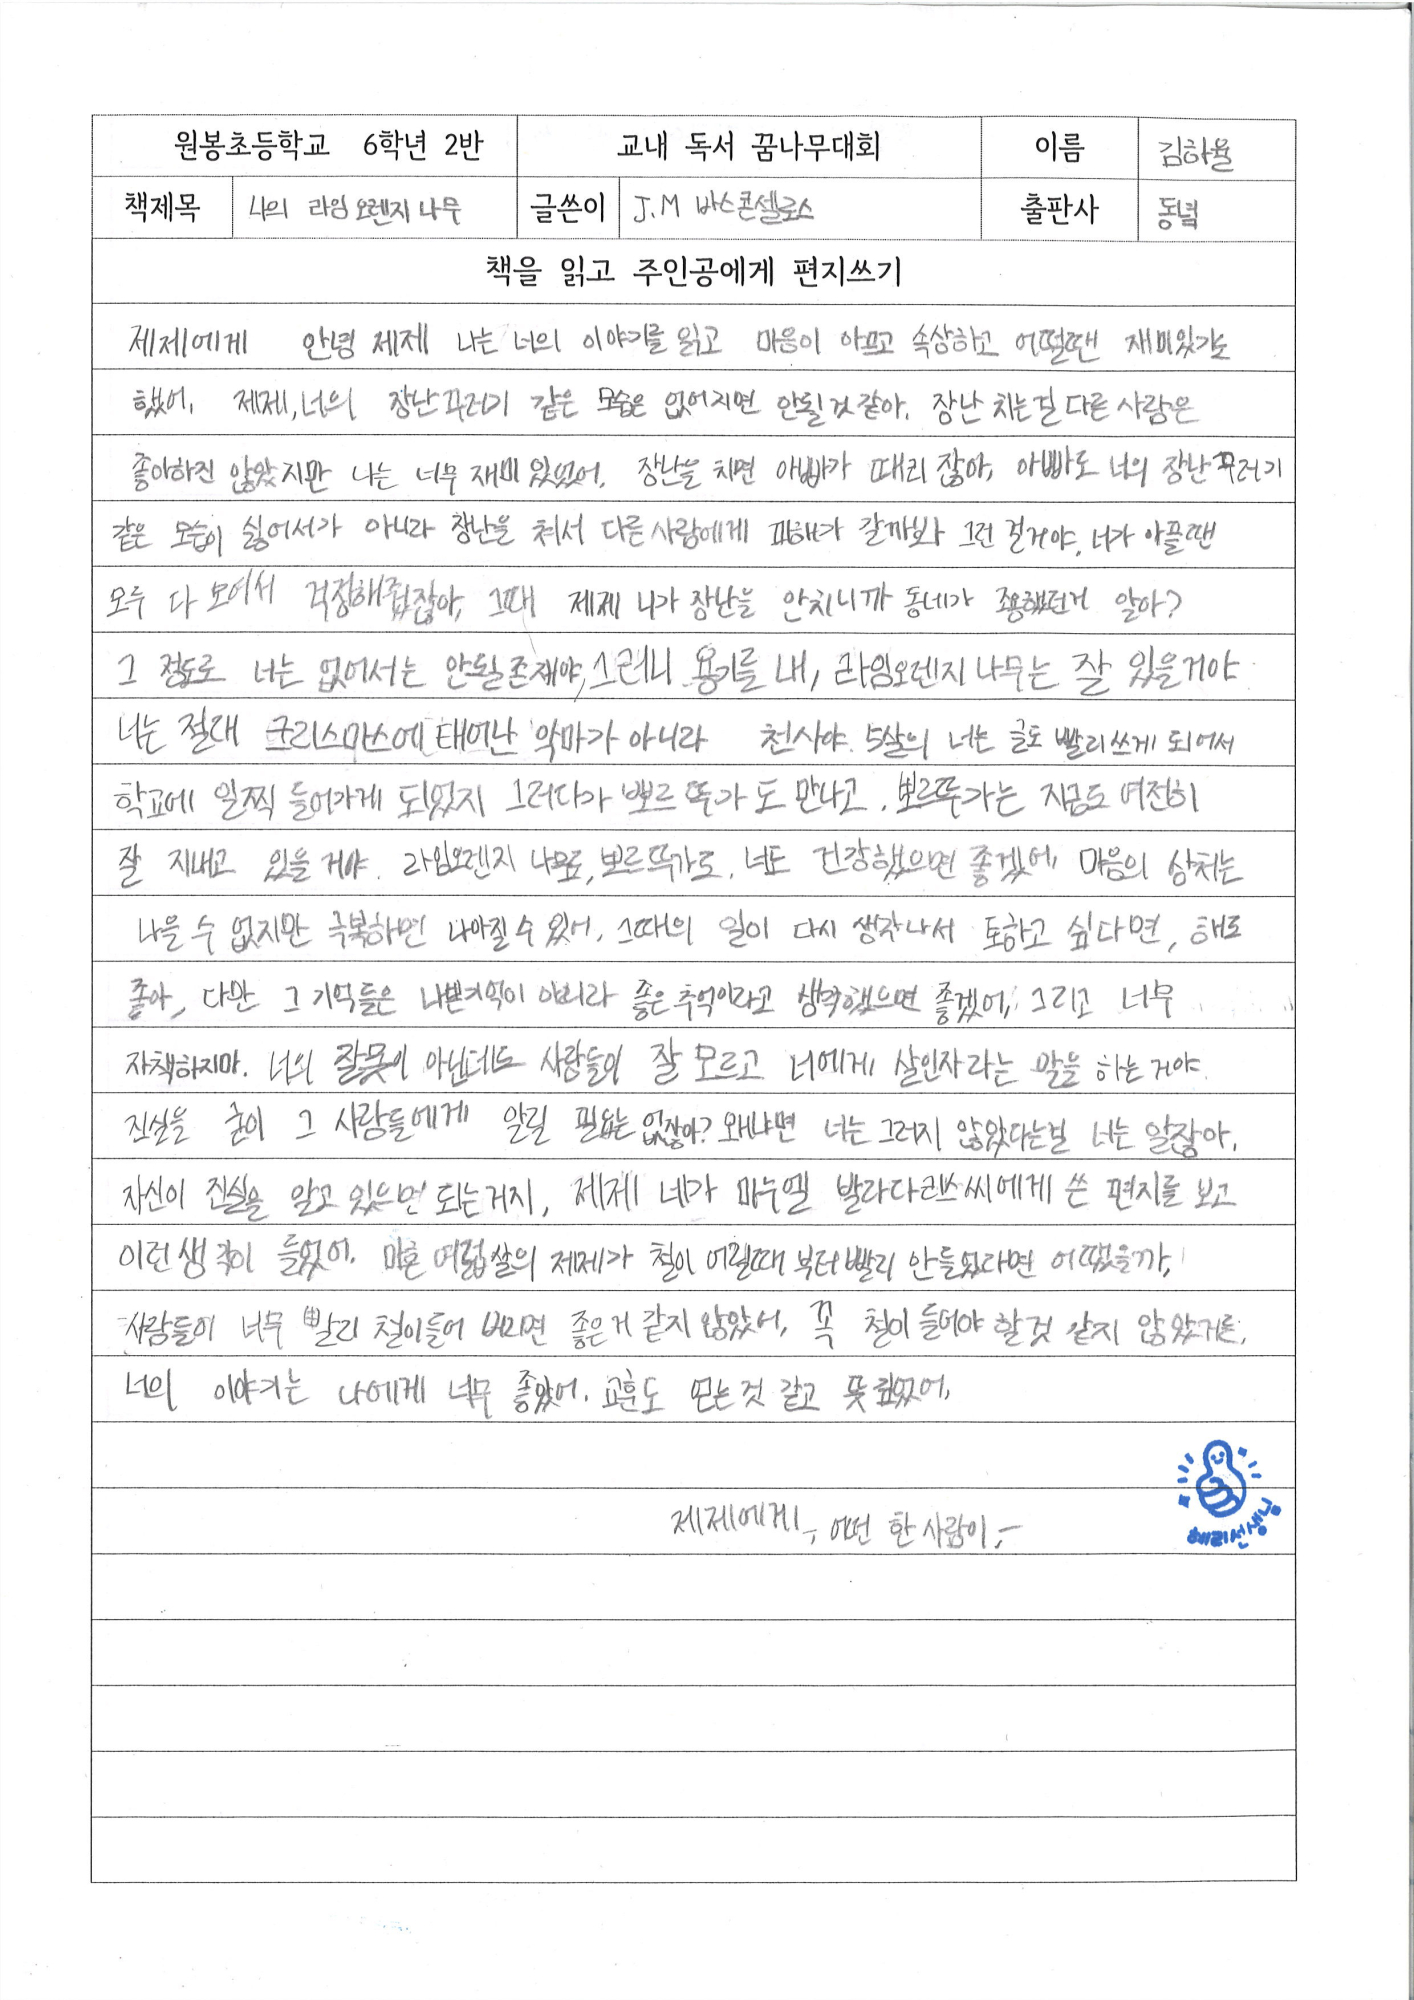 원봉초등학교 6학년 2반 교내 독서 꿈나무대회 이름 김하율
책제목 나의 라임 오렌지 나무 글쓴이 J.M 바스콘셀로스 출판사 동녘
책을 읽고 주인공에게 편지쓰기
제제에게 안녕 제제 나는 너의 이야기를 읽고 마음이 아프고 속상하고 어떨땐 재미있기도
했어. 제제, 너의 장난꾸러기 같은 모습은 없어지면 안될것 같아. 장난 치는걸 다른 사람은
좋아하진 않았지만 나는 너무 재미 있었어. 장난을 치면 아빠가 때리잖아, 아빠도 너의 장난꾸러기
같은 모습이 싫어서가 아니라 장난을 쳐서 다른 사람에게 피해가 갈까봐 그런 걸거야, 너가 아플땐
모두 다 모여서 걱정해줬잖아, 그때 제제 니가 장난을 안치니까 동네가 조용했던거 알아?
그 정도로 너는 없어서는 안될 존재야, 그러니 용기를 내, 라임오렌지 나무는 잘 있을거야
너는 절대 크리스마스에 태어난 악마가 아니라 천사야. 5살의 너는 글도 빨리 쓰게 되어서
학교에 일찍 들어가게 되었지 그러다가 뽀르뚜가도 만나고, 뽀르뚜가는 지금도 여전히
잘 지내고 있을 거야. 라임오렌지 나무로, 뽀르뚜가로. 너도 건강했으면 좋겠어 마음의 상처는
나을 수 없지만 극복하면 나아질 수 있어. 그때의 일이 다시 생각나서 토하고 싶다면, 해도
좋아, 다만 그 기억들은 나쁜기억이 아니라 좋은 추억이라고 생각했으면 좋겠어, 그리고 너무
자책하지마. 너의 잘못이 아닌데도 사람들이 잘 모르고 너에게 살인자라는 말을 하는거야.
진실을 굳이 그 사람들에게 알릴 필요는 없잖아? 왜냐면 너는 그러지 않았다는걸 너는 알잖아,
자신이 진실을 알고 있으면 되는거지, 제제 네가 마누엘 발라다리스씨에게 쓴 편지를 보고
이런 생각이 들었어. 마흔 여덟 살의 제제가 철이 어릴때 부터 빨리 안들었다면 어땠을까,
사람들이 너무 빨리 철이들어 버리면 좋은거 같지 않았어, 꼭 철이 들어야 할것 같지 않았거든,
너의 이야기는 나에게 너무 좋았어. 교훈도 얻는것 같고 뜻 깊었어,
제제에게, 어떤 한 사람이,-
혜리선생님